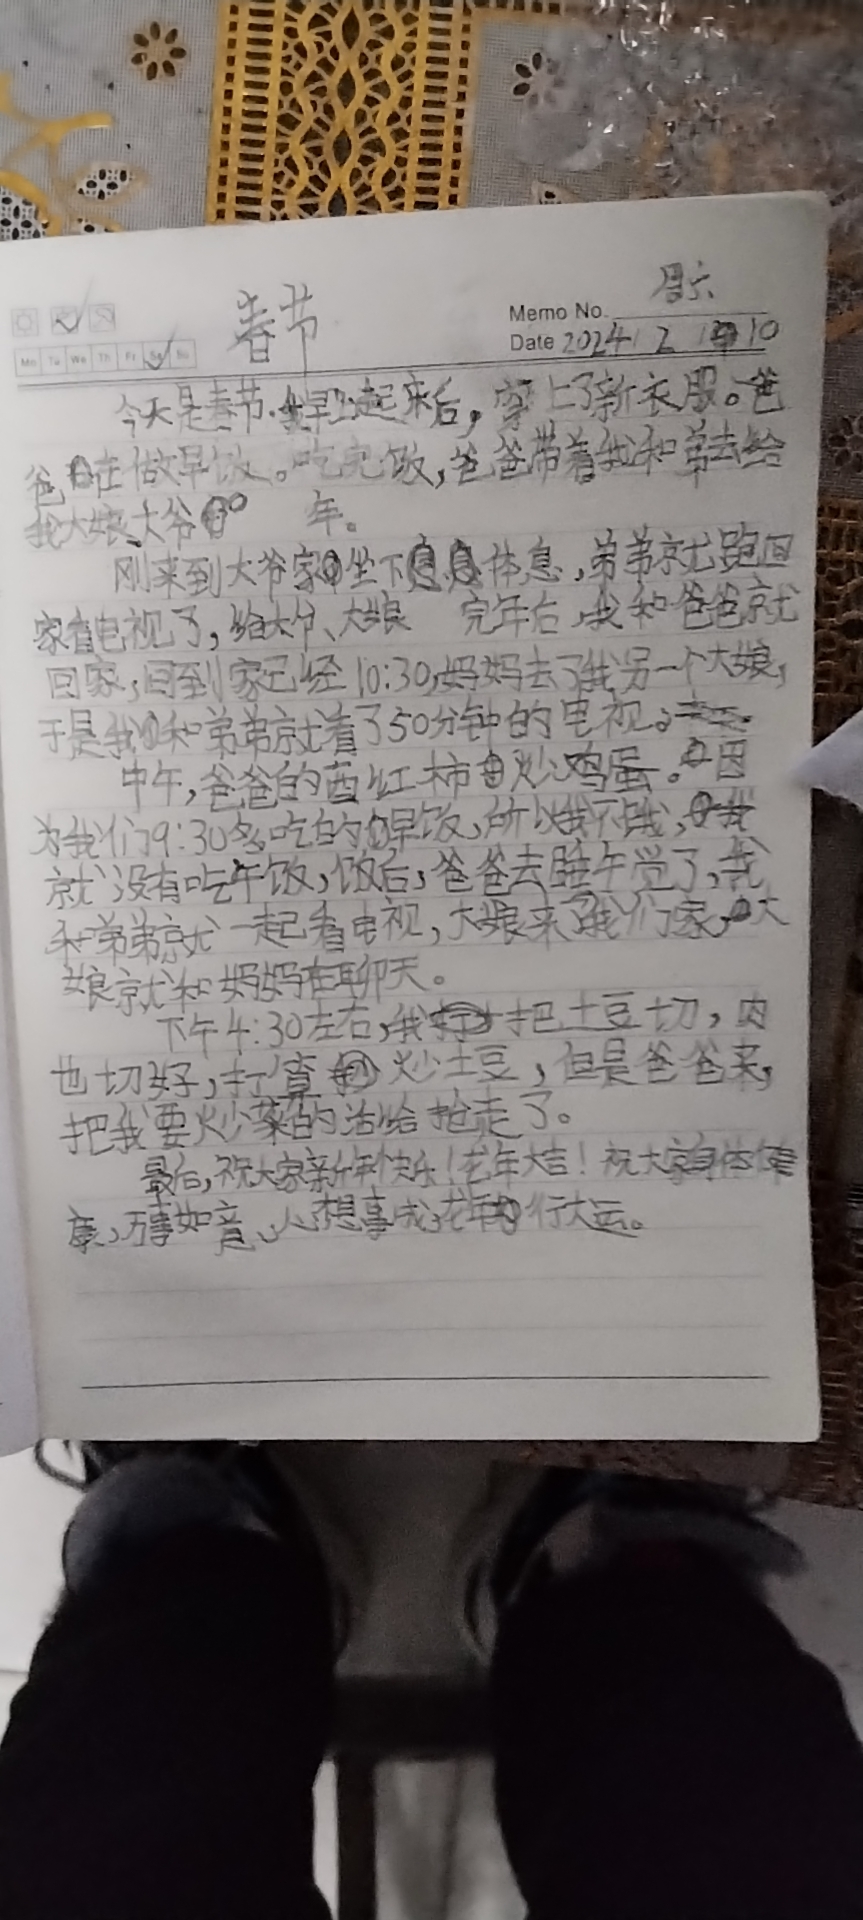 春节
周六
Memo No.
Date 2024 2 10
Mo Tu We Th Fr Sa Su
今天是春节.我早上起来后，穿上了新衣服。爸
爸在做早饭。吃完饭，爸爸带着我和弟去给
我大娘、大爷 年。
刚来到大爷家坐下休息，弟弟就跑回
家看电视了，给大爷、大娘 完年后，我和爸爸就
回家，回到家已经10:30，妈妈去了我另一个大娘，
于是我和弟弟就看了50分钟的电视。
中午，爸爸的西红柿炒鸡蛋。因
为我们9:30多吃的早饭，所以我不饿，我
就没有吃午饭，饭后，爸爸去睡午觉了，我
和弟弟就一起看电视，大娘来了我们家，大
娘就和妈妈在聊天。
下午4:30左右，我把土豆切，肉
也切好，打算炒土豆，但是爸爸来，
把我要炒菜的活给抢走了。
最后，祝大家新年快乐！龙年大吉！祝大家身体健
康，万事如意、心想事成，龙年行大运。